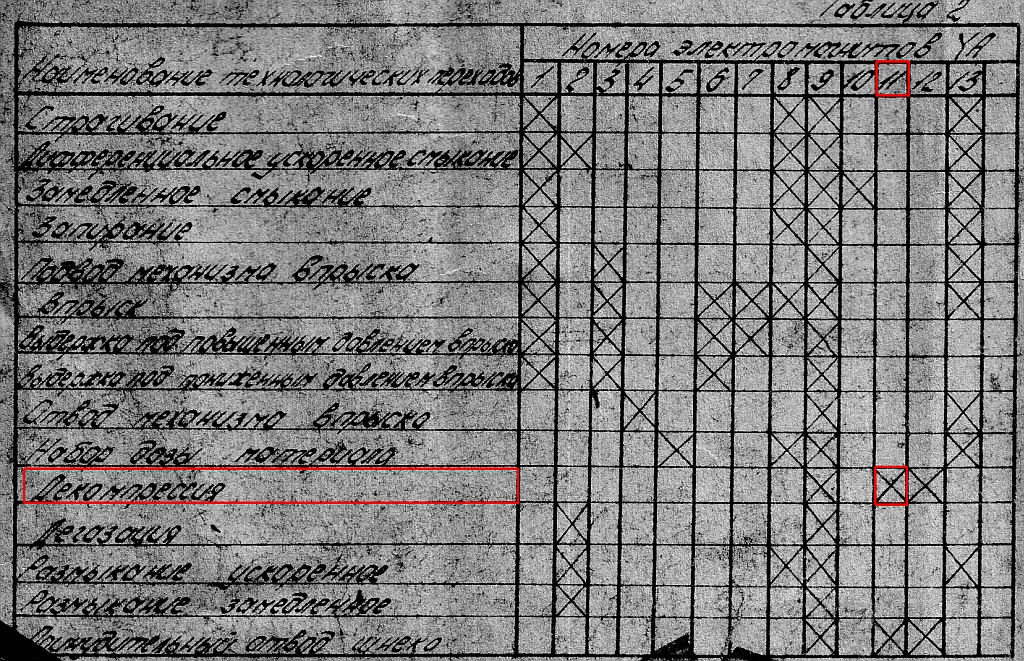 Таблица 2
Номера электромагнитов YA
Наименование технологических переходов 1 2 3 4 5 6 7 8 9 10 11 12 13
Страгивание
Дифференциальное ускоренное смыкание
Замедленное смыкание
Запирание
Подвод механизма впрыска
Впрыск
Выдержка под повышенным давлением впрыска
Выдержка под пониженным давлением впрыска
Отвод механизма впрыска
Набор дозы материала
Декомпрессия
Дегазация
Размыкание ускоренное
Размыкание замедленное
Принудительный отвод шнека